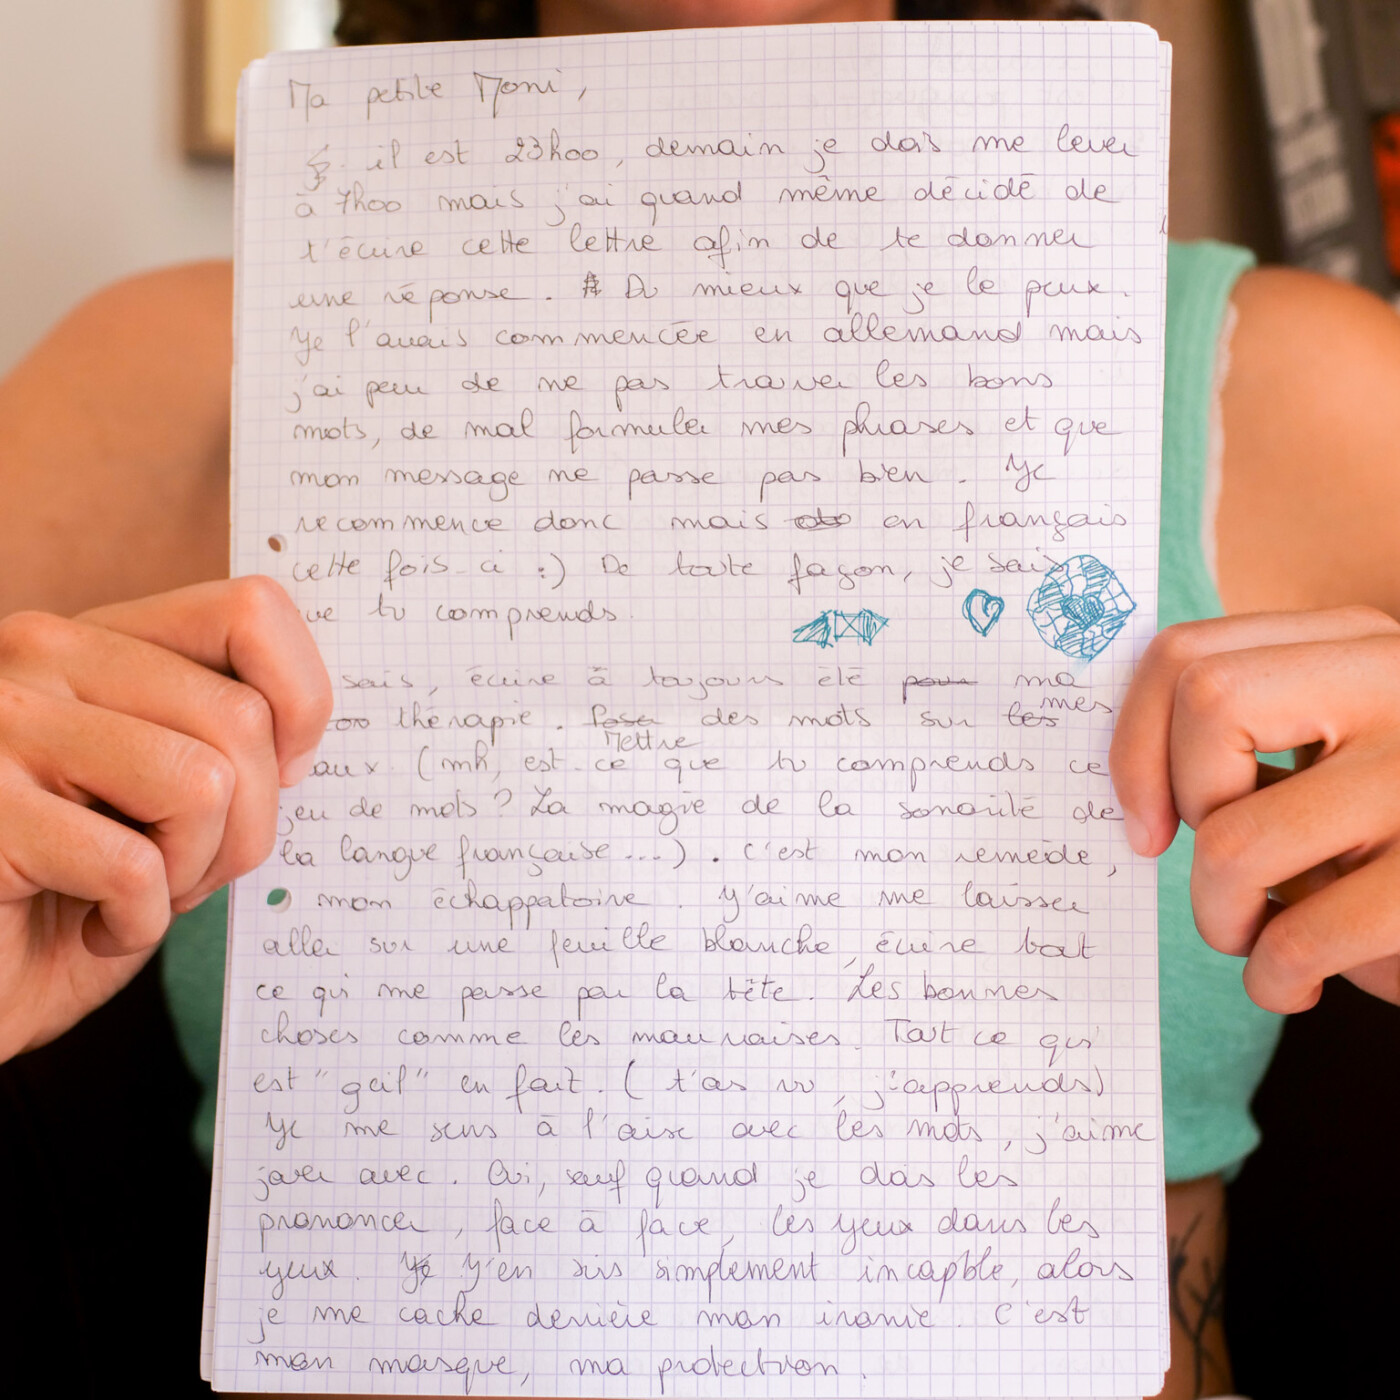 Ma petite Moni,
il est 23h00, demain je dois me lever
à 7h00 mais j'ai quand même décidé de
t'écrire cette lettre afin de te donner
une réponse. Du mieux que je le peux.
Je l'avais commencée en allemand mais
j'ai peur de ne pas trouver les bons
mots, de mal formuler mes phrases et que
mon message ne passe pas bien. Je
recommence donc mais en français
cette fois-ci :) De toute façon, je sais
ue tu comprends.
sais, écrire à toujours été pour ma
thérapie. Poser des mots sur les mes
Mettre
aux (mh, est-ce que tu comprends ce
jeu de mots? La magie de la sonorité de
la langue française...). c'est mon remède,
mon échappatoire. J'aime me laisser
aller sur une feuille blanche, écrire tout
ce qui me passe par la tête. Les bonnes
choses comme les mauvaises. Tout ce qui
est "geil" en fait. (t'as vu, j'apprends)
Je me sens à l'aise avec les mots, j'aime
jouer avec. Oui, sauf quand je dois les
prononcer, face à face, les yeux dans les
yeux. Je J'en suis simplement incapble, alors
je me cache derrière mon ironie. C'est
mon masque, ma protection.